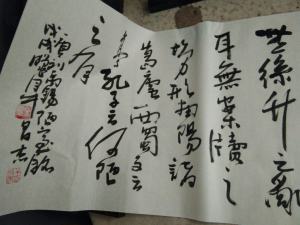 無絲竹之亂
耳無案牘之
勞形南陽諸
葛廬西蜀子云
亭孔子云何陋
之有
劉禹錫陋室銘
戊戌